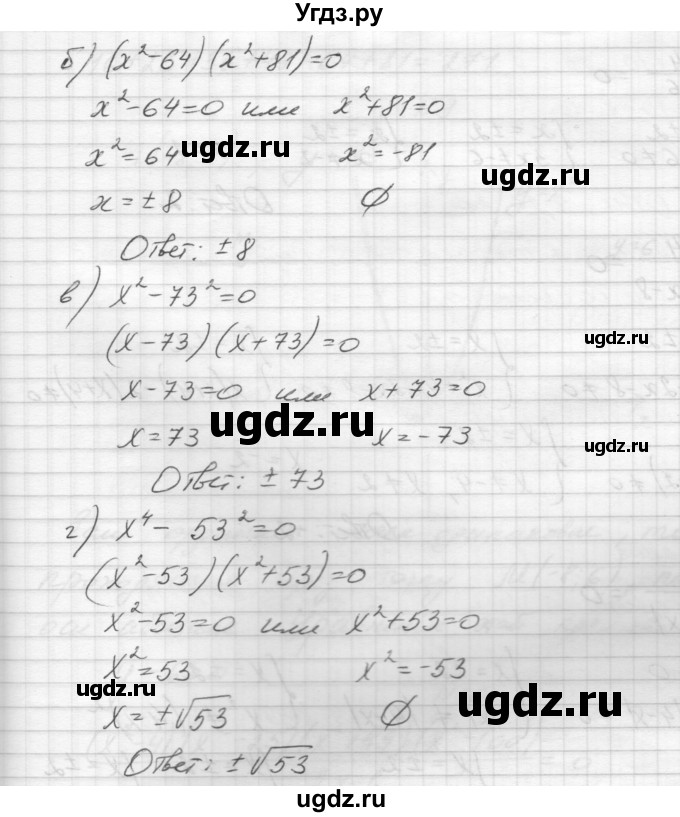 Угдз.ру
б) (x²-64)(x²+81)=0
x²-64=0 или x²+81=0
x²=64 x²=-81
ugdz.ru
ugdz.ru
x=±8 ∅
Ответ: ±8
в) x²-73²=0
(x-73)(x+73)=0
ugdz.ru
x-73=0 или x+73=0
ugdz.ru
x=73 x=-73
ugdz.ru
Ответ: ±73
г) x⁴-53²=0
(x²-53)(x²+53)=0
x²-53=0 или x²+53=0
x²=53 x²=-53
ugdz.ru
ugdz.ru
x=±√53 ∅
Ответ: ±√53
ugdz.ru